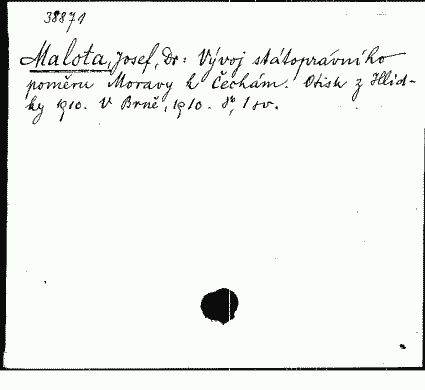 38871
Malota, Josef, Dr: Vývoj státoprávního
poměru Moravy k Čechám. Otisk z Hlíd-
ky 1910. V Brně, 1910. 8°, 1 sv.